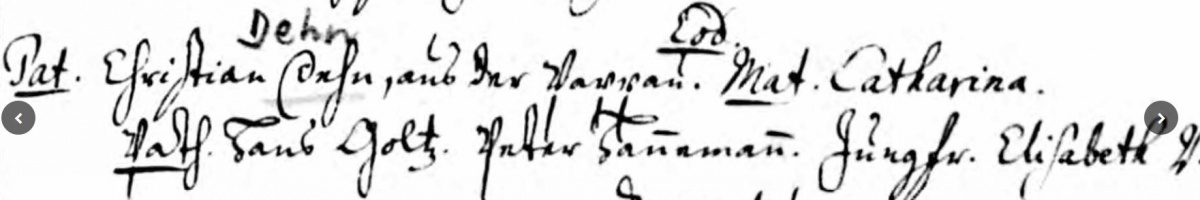 Dehn
Eod.
Pat. Christian Dehn, aus der Varrau. Mat. Catharina.
Path. Hans Goltz. Peter Hannemann. Jungfr. Elisabeth V.